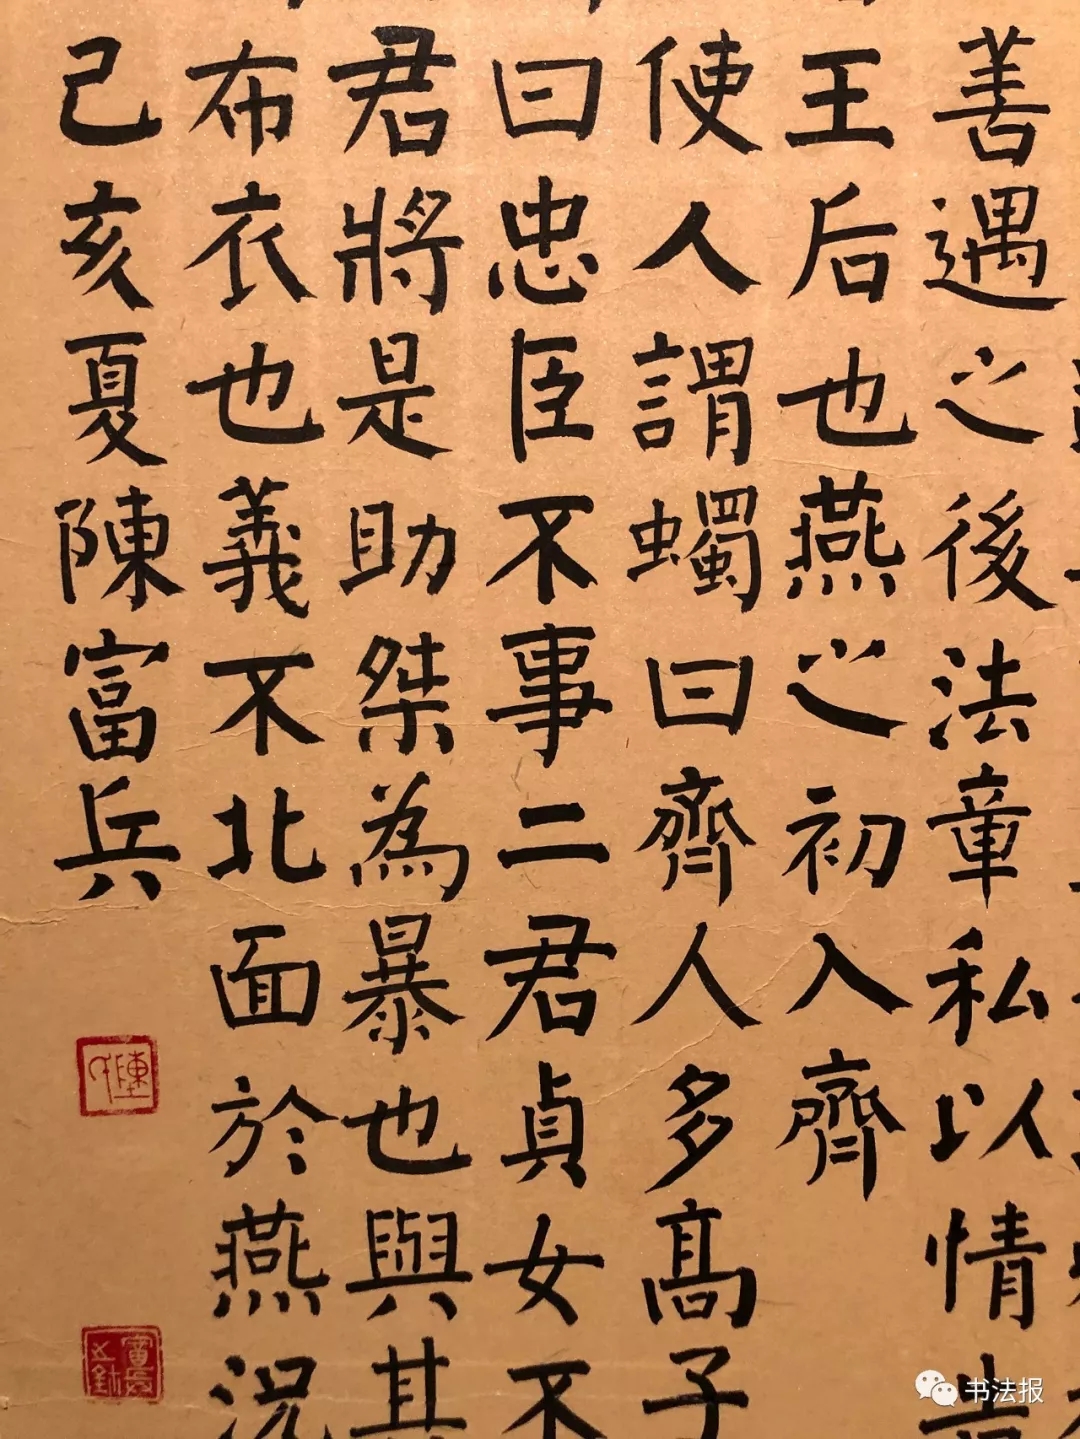 善遇之後法章私以情
王后也燕之初入齊
使人謂蠋曰齊人多高子
曰忠臣不事二君貞女不
君將是助桀為暴也與其
布衣也義不北面於燕況
己亥夏陳富兵
书法报